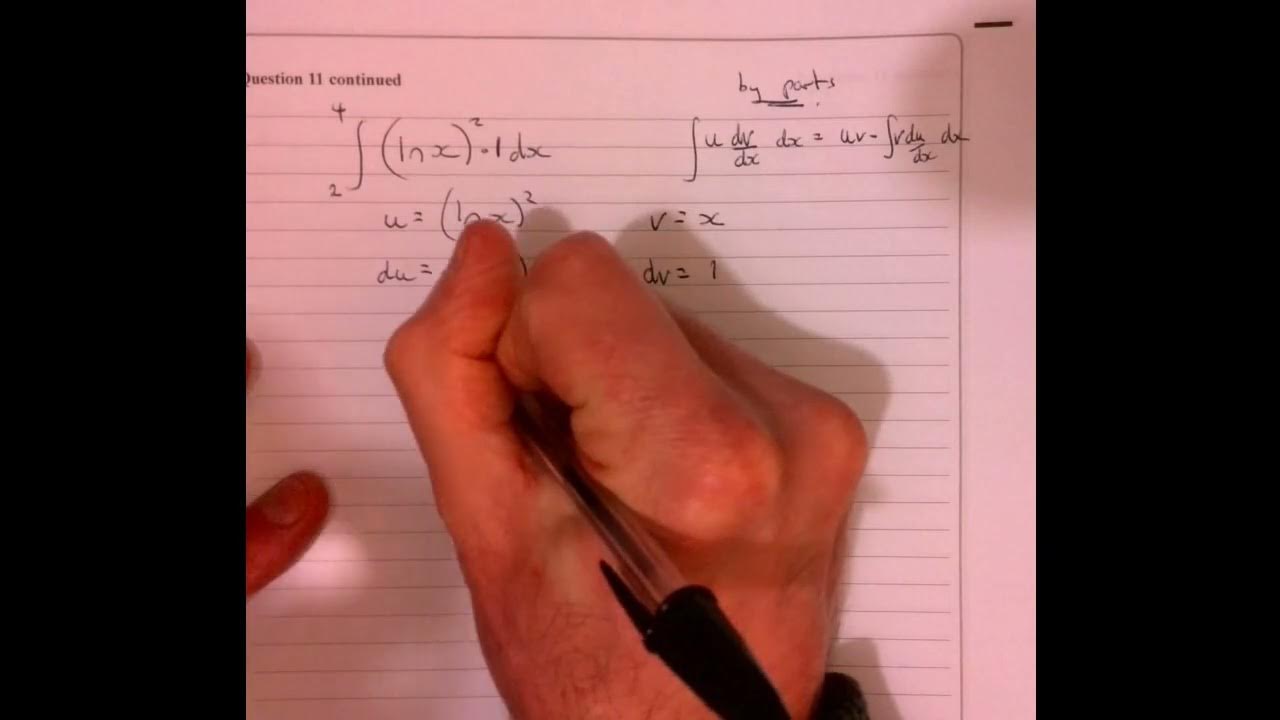 Question 11 continued
by parts
4
∫ (ln x)² · 1 dx
2
∫ u dv/dx dx = uv - ∫ v du/dx dx
u = (ln x)² v = x
du = dv = 1